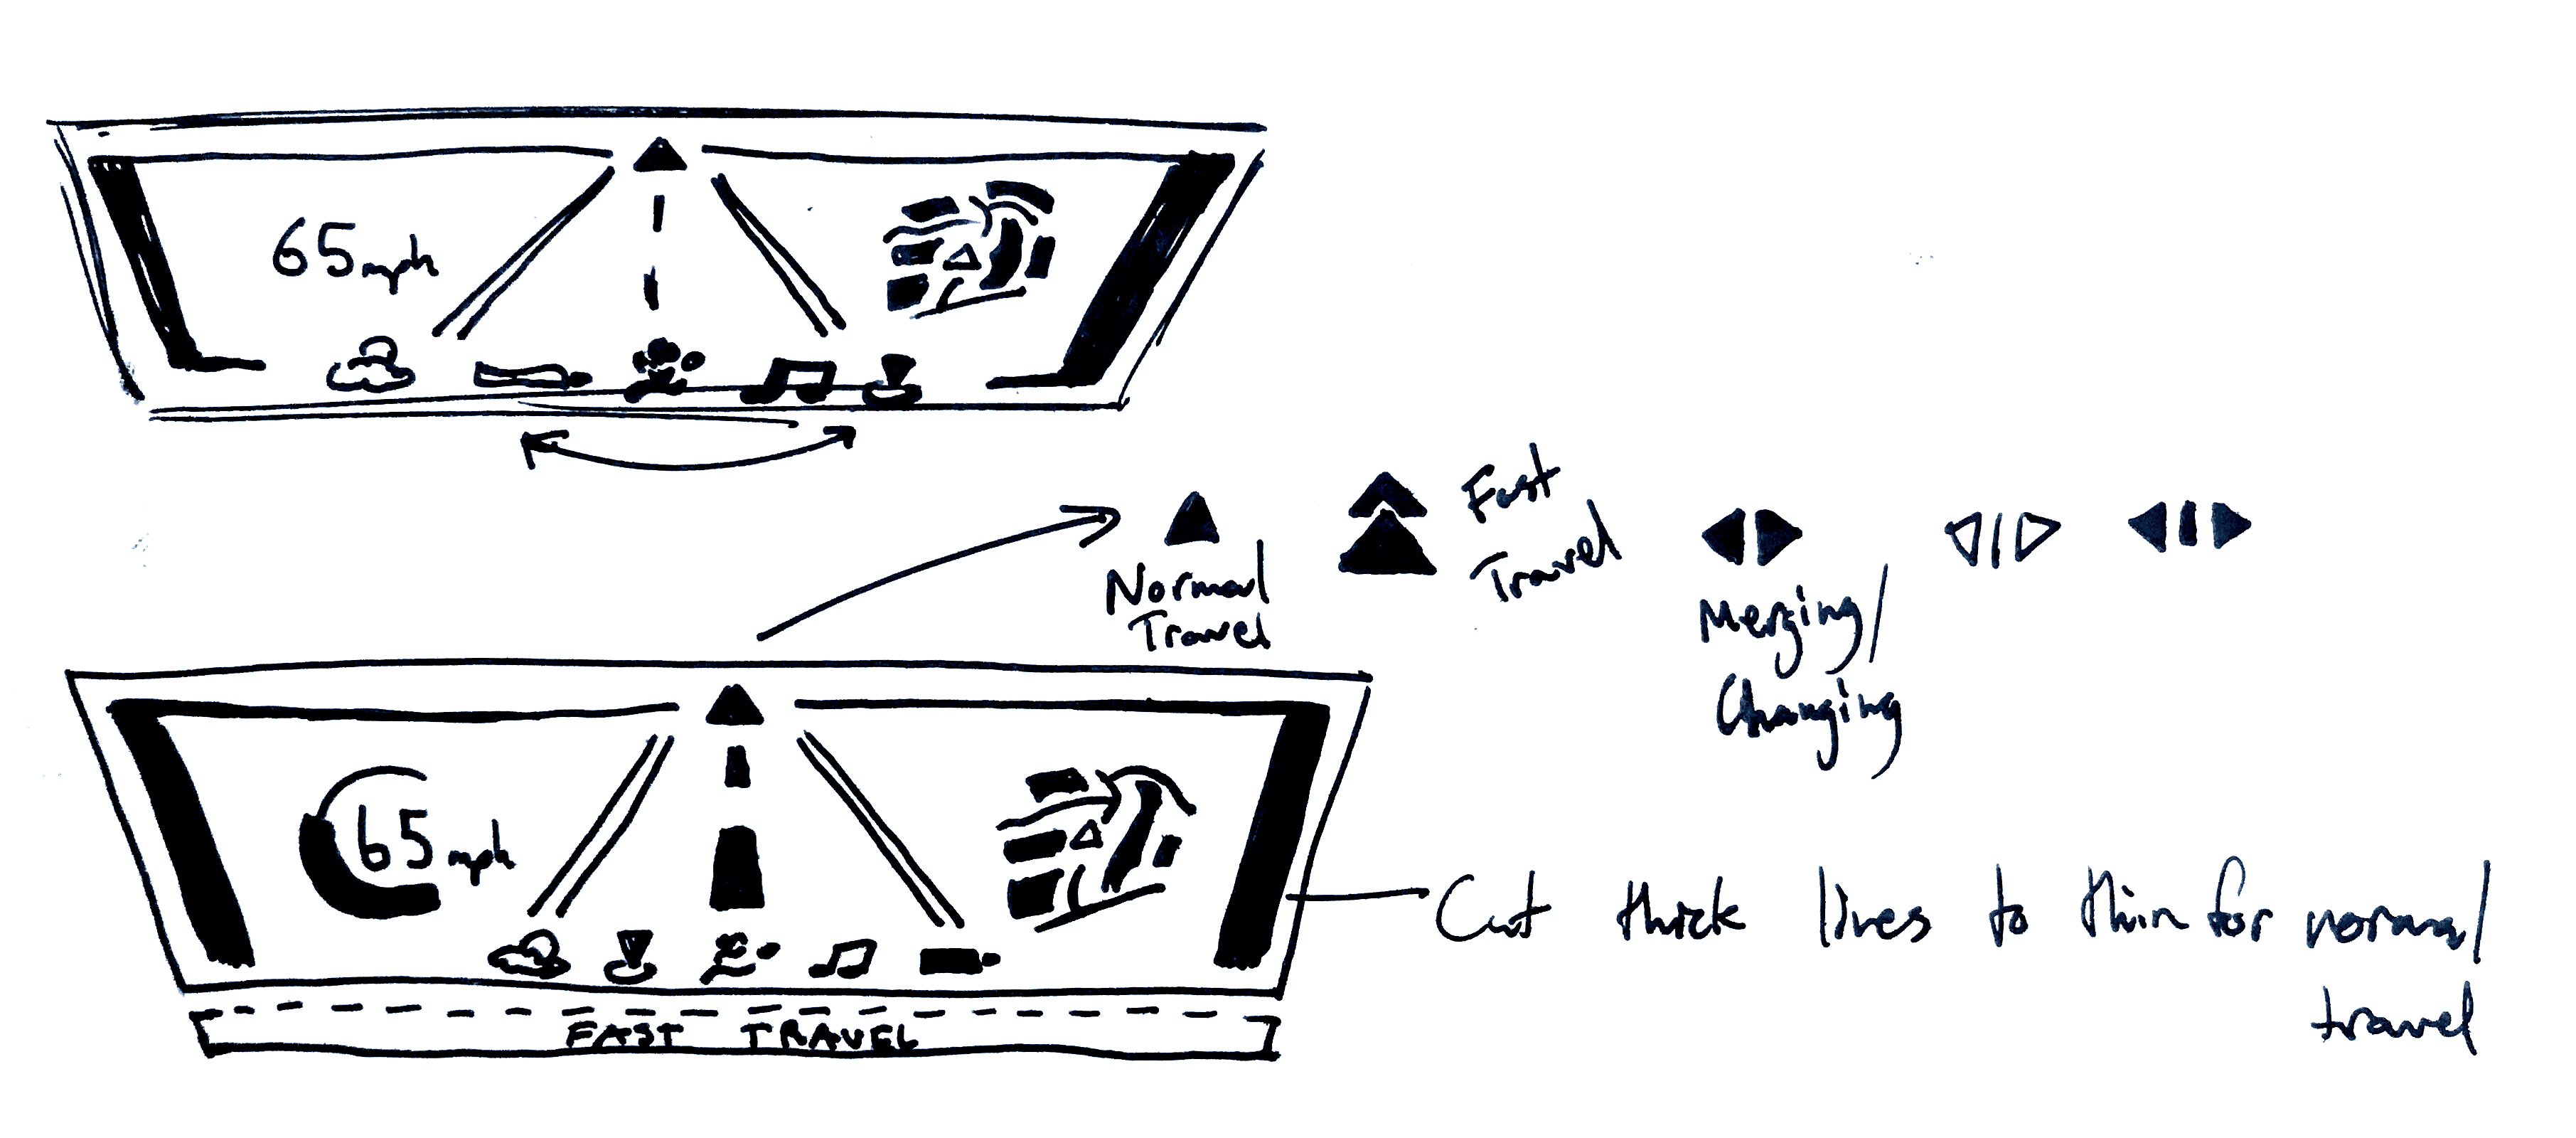 65mph
Normal
Travel
Fast
Travel
Merging/
Changing
65mph
Cut thick lines to thin for normal
travel
FAST TRAVEL